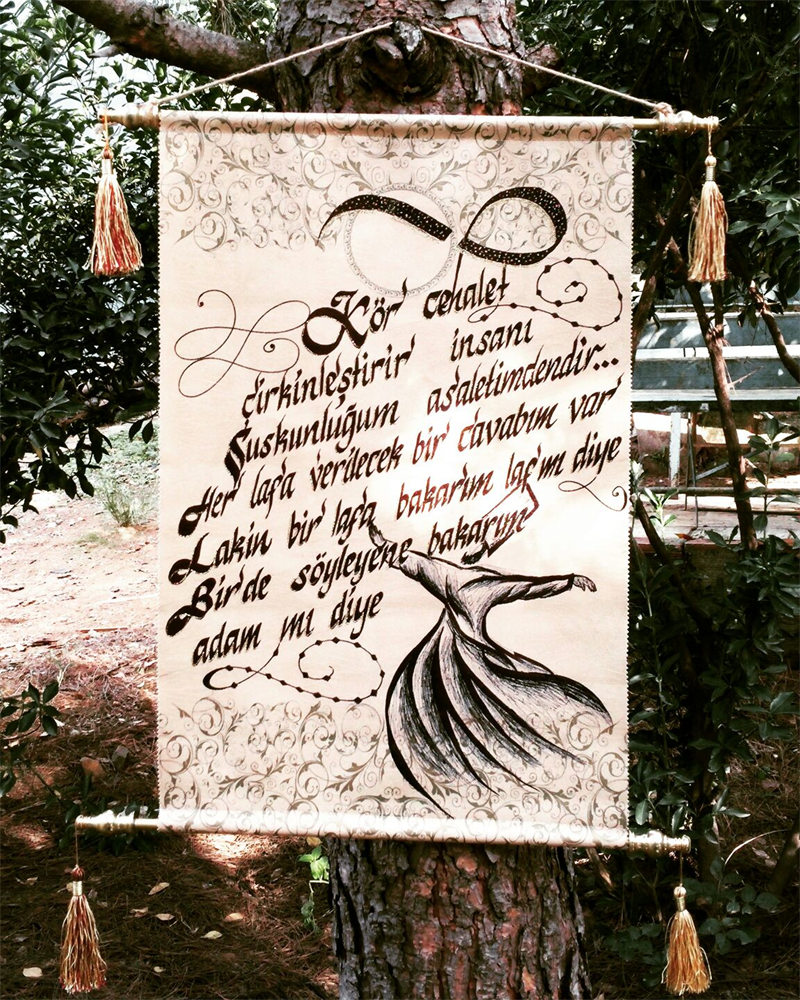 Kör cehalet
çirkinleştirir insanı
Suskunluğum asaletimdendir...
Her lafa verilecek bir cavabım var
Lakin bir lafa bakarım laf mı diye
Birde söyleyene bakarım
adam mı diye